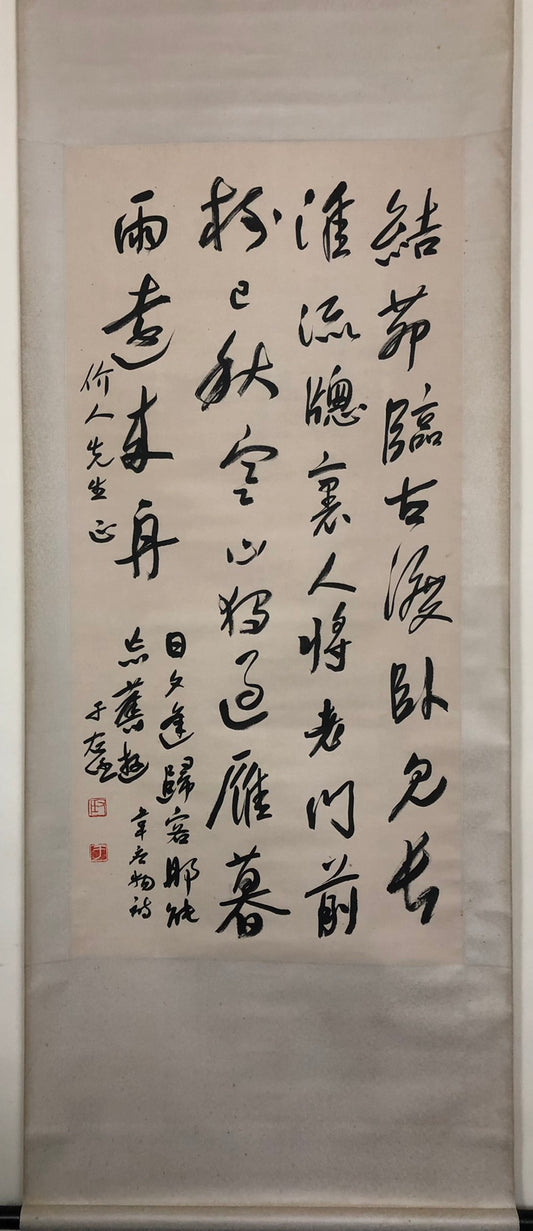 結茆臨古渡臥見長
淮流牕裏人將老門前
樹已秋寒山獨過雁暮
雨遠來舟
日夕逢歸客那能
忘舊遊
韋應物詩
价人先生正
于右任